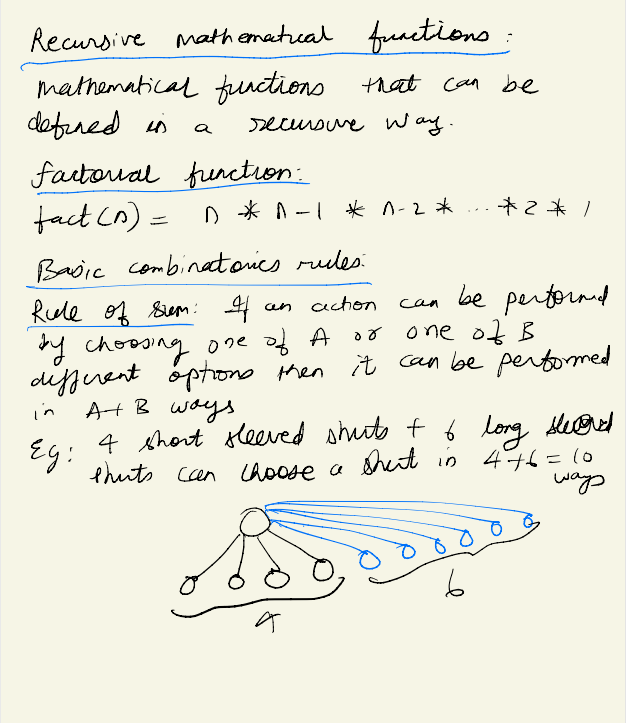 Recursive mathematical functions:
Mathematical functions that can be
defined in a recursive way.
factorial function:
fact(n) = n * n-1 * n-2 * ... * 2 * 1
Basic combinatorics rules:
Rule of sum: If an action can be performed
by choosing one of A or one of B
different options then it can be performed
in A+B ways
Eg: 4 short sleeved shirts + 6 long sleeved
shirts can choose a shirt in 4+6 = 10
ways
4
6